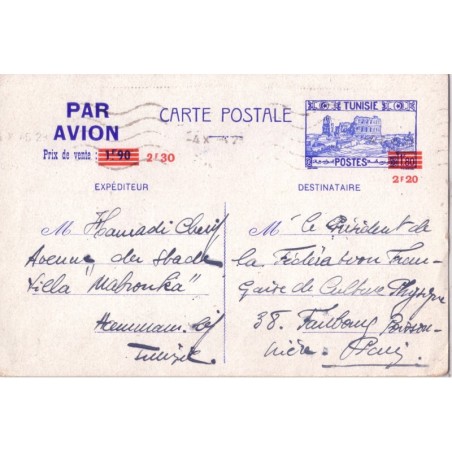 PAR AVION
CARTE POSTALE
TUNISIE
POSTES
Prix de vente : 1F90 2f30
2f20
EXPÉDITEUR
DESTINATAIRE
M Hamadi Cherif
Avenue du Stade
Villa "Mabrouka"
Hammam. Lif
Tunisie
M. le Président de
la Fédération Fran-
çaise de Culture Physique
38. Faubourg Poisson-
nière. Paris